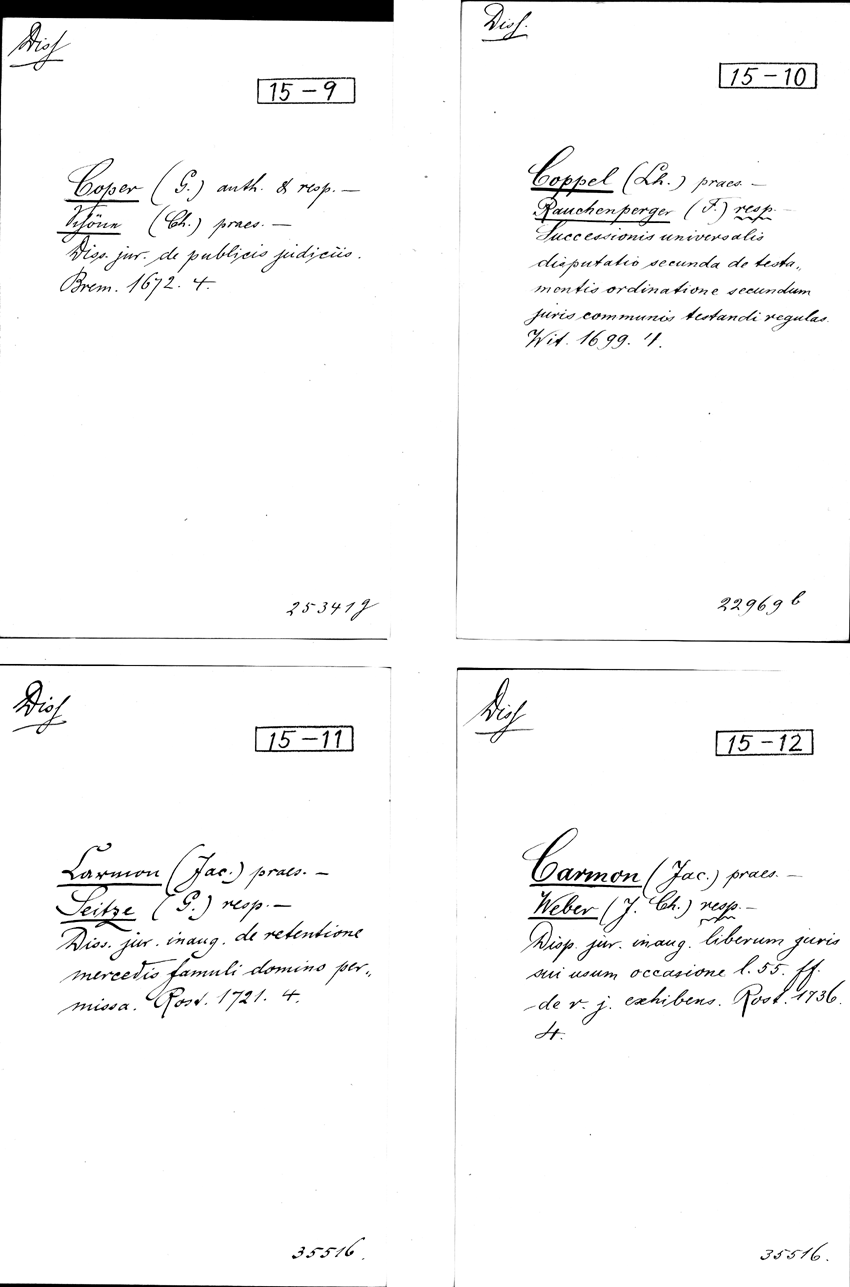 Diss
15-9
Coper (G.) auth. & resp. —
Schöne (Ch.) praes. —
Diss. jur. de publicis judiciis.
Brem. 1672. 4.
25341g
Diss.
15-10
Coppel (Lh.) praes. —
Rauchenperger (F.) resp. —
Successionis universalis
disputatio secunda de testa-
mentis ordinatione secundum
juris communis testandi regulas.
Wit. 1699. 4.
22969b
Diss
15-11
Carmon (Jac.) praes. —
Seitze (G.) resp. —
Diss. jur. inaug. de retentione
mercedis famuli domino per-
missa. Rost. 1721. 4.
35516.
Diss
15-12
Carmon (Jac.) praes. —
Weber (J. Ch.) resp. —
Disp. jur. inaug. liberum juris
sui usum occasione l. 55. ff.
de r. j. exhibens. Rost. 1736.
4.
35516.